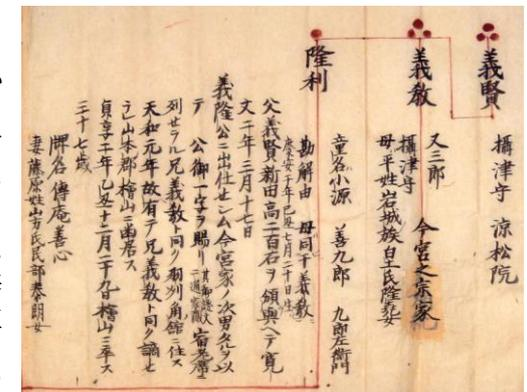 義賢 攝津守 涼松院
義教 又三郎 今宮之宗家
攝津守
母平姓岩城族白土氏隆尭女
隆利 童名小源 善九郎 九郎左衛門
勘解由 母同于義教
慶安二年己丑七月二十日生
父義賢新田高二百石ヲ領與ヘテ寛
文二年三月十七日
義隆公ニ出仕セシム今宮家ノ次男タルヲ以
テ 公御一字ヲ賜リ
列セラル兄義教ト同ク羽州角館ニ住ス
天和元年故有テ兄義教ト同ク謫セ
ラレ山本郡檜山ニ幽居ス
貞享二年乙丑十二月二十九日檜山ニ卒ス
三十七歳
牌名傳庵善心
妻藤原姓山方氏民部泰朗女